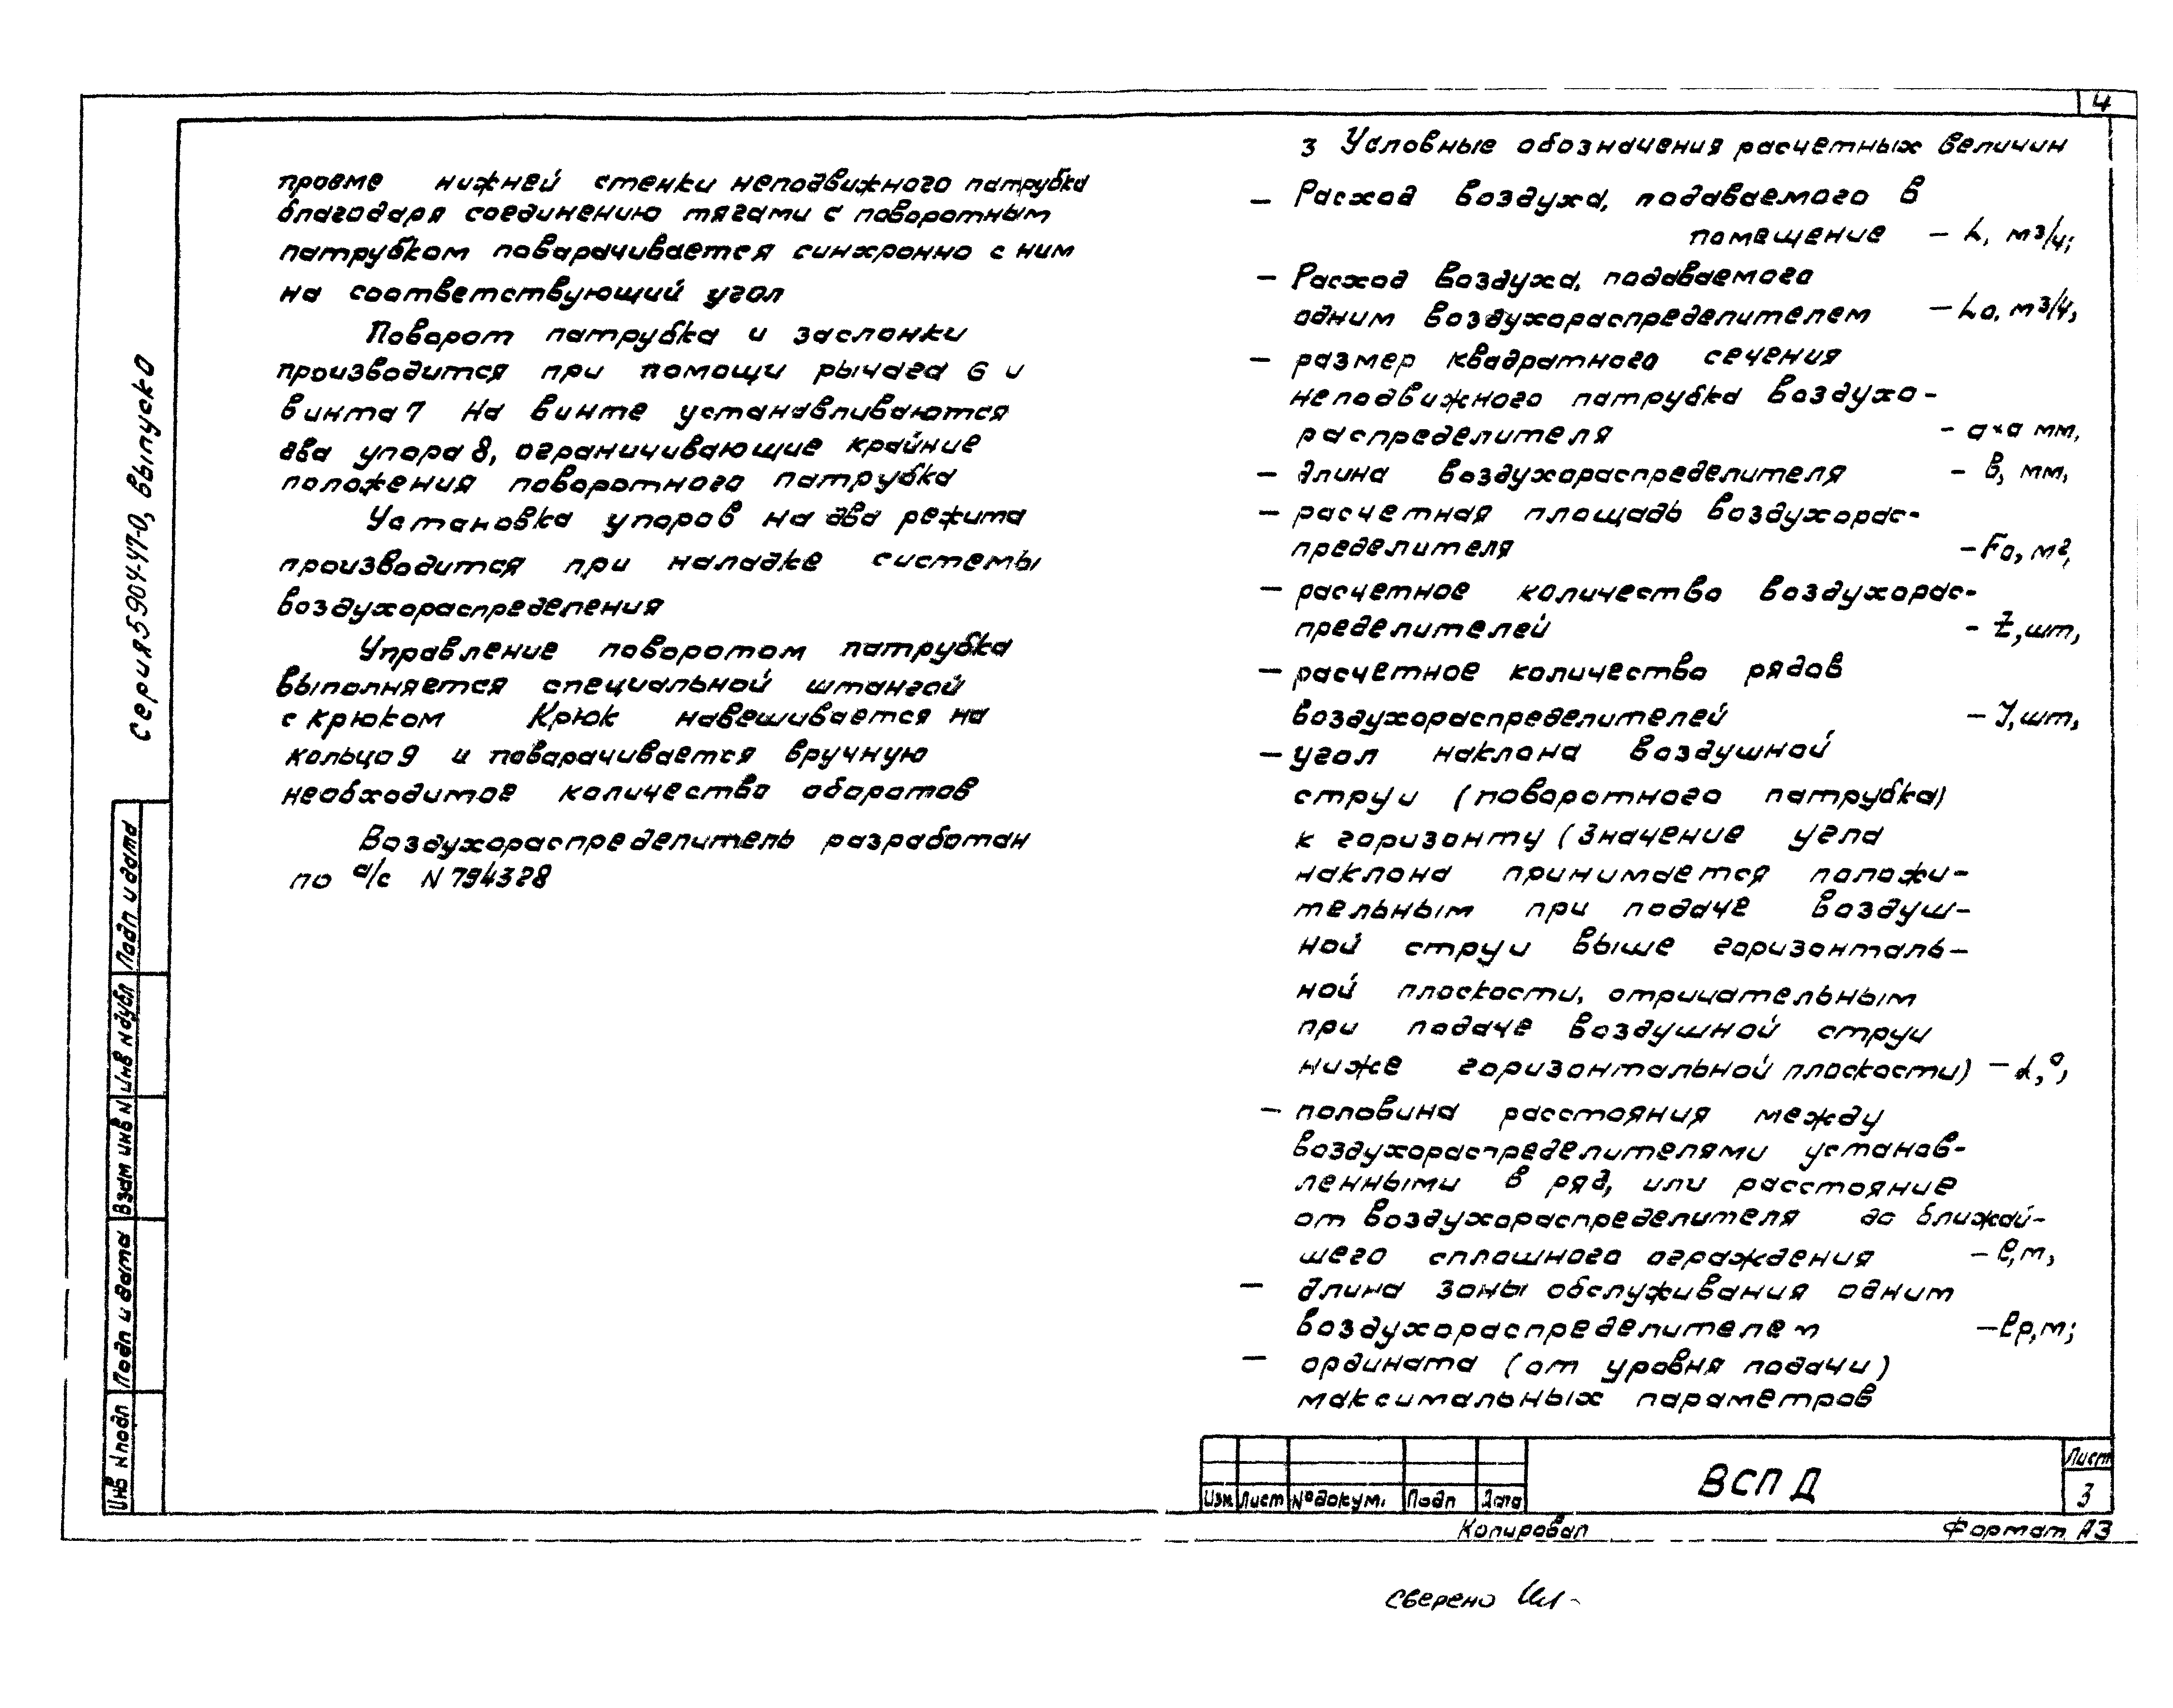 4
проеме нижней стенки неподвижного патрубка
благодаря соединению тягами с поворотным
патрубком поворачивается синхронно с ним
на соответствующий угол
Поворот патрубка и заслонки
производится при помощи рычага 6 и
винта 7 На винте устанавливаются
два упора 8, ограничивающие крайние
положения поворотного патрубка
Установка упоров на два режима
производится при наладке системы
воздухораспределения
Управление поворотом патрубка
выполняется специальной штангой
с крюком Крюк навешивается на
кольцо 9 и поворачивается вручную
необходимое количество оборотов
Воздухораспределитель разработан
по а/с N 794328
3 Условные обозначения расчетных величин
— Расход воздуха, подаваемого в
помещение — L, м3/ч;
— Расход воздуха, подаваемого
одним воздухораспределителем — Lо, м3/ч,
— размер квадратного сечения
неподвижного патрубка воздухо-
распределителя - a×a мм,
— длина воздухораспределителя - В, мм,
— расчетная площадь воздухорас-
пределителя - Fо, м2,
— расчетное количество воздухорас-
пределителей - Z, шт,
— расчетное количество рядов
воздухораспределителей - У, шт,
— угол наклона воздушной
струи (поворотного патрубка)
к горизонту (значение угла
наклона принимается положи-
тельным при подаче воздуш-
ной струи выше горизонталь-
ной плоскости, отрицательным
при подаче воздушной струи
ниже горизонтальной плоскости) — α,°,
— половина расстояния между
воздухораспределителями установ-
ленными в ряд, или расстояние
от воздухораспределителя до ближай-
шего сплошного ограждения — ℓ, м,
— длина зоны обслуживания одним
воздухораспределителем — ℓр, м;
— ордината (от уровня подачи)
максимальных параметров
Серия 5 904-47-0, выпуск 0
Подп и дата
Инв N дубл
Взам инв N
Подп и дата
Инв N подп
Изм Лист № докум. Подп Дата
ВСП Д
Лист
3
Копировал
Формат А3
сверено